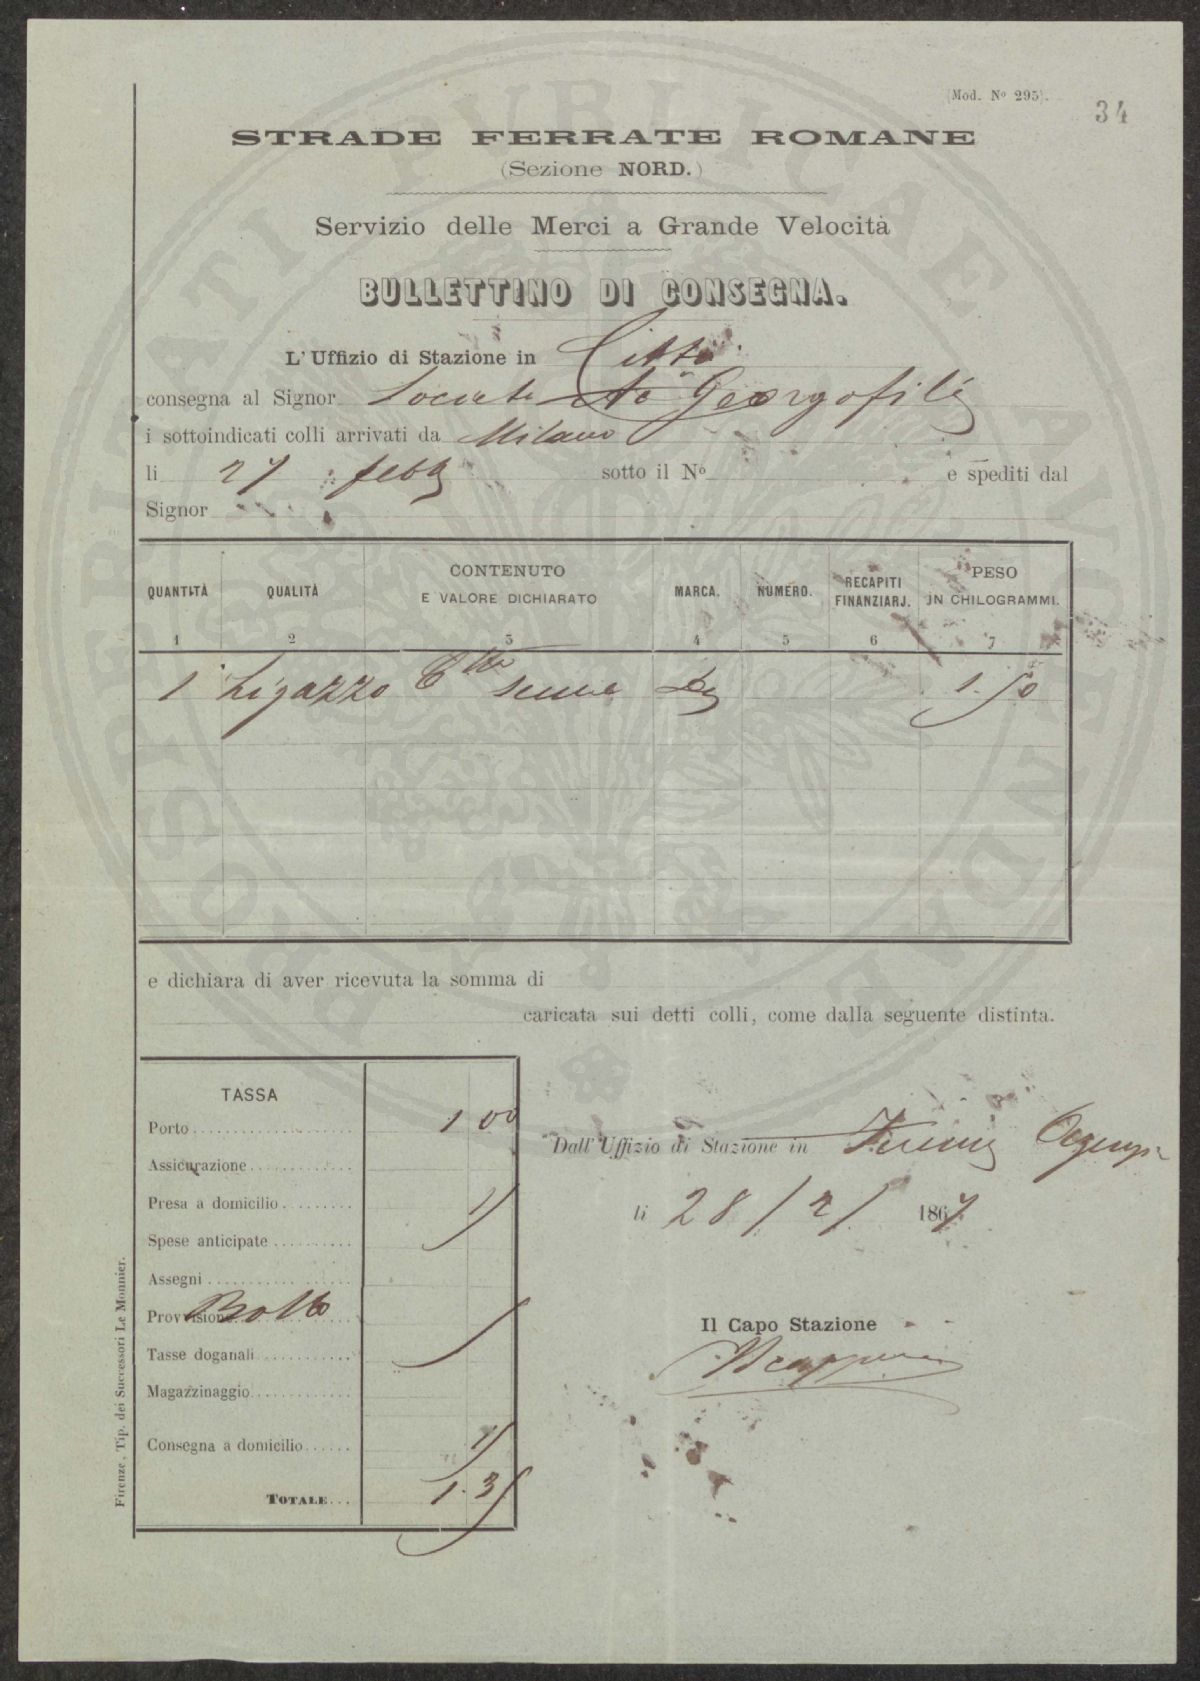 (Mod. Nº 295).
34
STRADE FERRATE ROMANE
(Sezione NORD.)
Servizio delle Merci a Grande Velocità
BULLETTINO DI CONSEGNA.
L'Uffizio di Stazione in Città
consegna al Signor Georgofili
i sottoindicati colli arrivati da Milano
li 27 febb sotto il Nº e spediti dal
Signor
QUANTITÀ QUALITÀ CONTENUTO E VALORE DICHIARATO MARCA. NUMERO. RECAPITI FINANZIARJ. PESO IN CHILOGRAMMI.
1 2 3 4 5 6 7
1 seme 1.50
e dichiara di aver ricevuta la somma di
caricata sui detti colli, come dalla seguente distinta.
TASSA
Porto 1 00
Assicurazione
Presa a domicilio
Spese anticipate
Assegni
Provvisione Bollo
Tasse doganali
Magazzinaggio
Consegna a domicilio
TOTALE 1.35
Dall'Uffizio di Stazione in
li 28/2/ 1867
Il Capo Stazione
Firenze, Tip. dei Successori Le Monnier.
PROSPERITATI PVBLICAE AVGENDAE